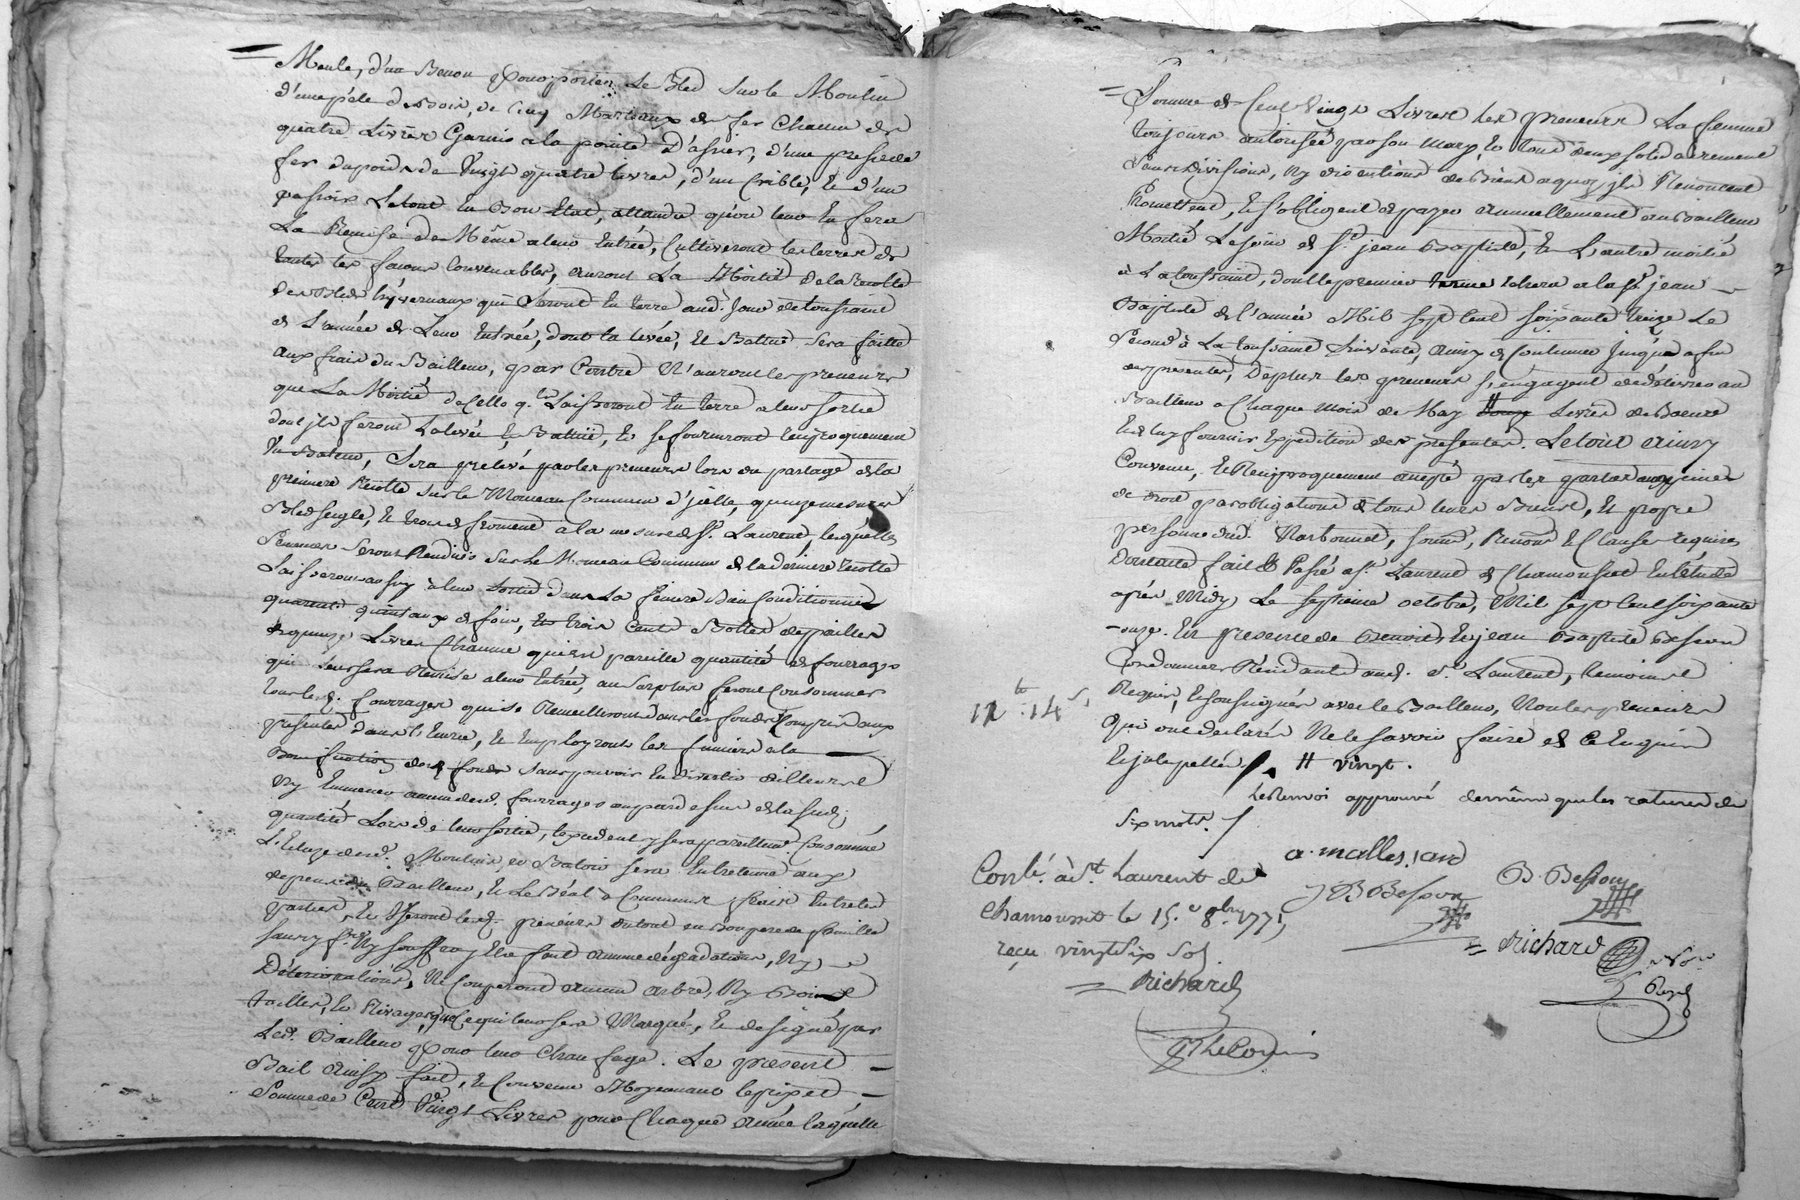 Meule, d'un Benou pour porter Le Bled sur le Moulin
d'une pele de Bois, de Cinq Marteaux de fer Chacun de
quatre Livres Garnis a la pointe D'assier, d'une presse de
fer du poids de Vingt quatre livres, d'un Crible, Et d'un
passoir Le tout En Bon Etat, attendu qu'on leur En fera
La Remise de Même a leur Entrée, Cultiveront les terres de
toutes les façons Convenables, auront La Moitié de la recolte
des Bleds hyvernaux qui Seront En terre aud. Jour de toussaint
de L'année de Leur Entrée, dont la levée, Et Battue sera faitte
aux frais du Bailleur, par Contre N'auront les preneurs
que La Moitié de Celle q. Laisseront En terre a leur sortie
dont jls feront La levée Et Battue, Et se fourniront reciproquement
Sera prelevé par les preneurs lors du partage de la
premiere Recolte sur le Monceau Commun d'jcelle, quinze mesures
Bled seigle, Et trois de froment a la mesure de St. Laurent, lesquelles
Semences Seront Renduës Sur Le Monceau Commun de la derniere recolte
Laisseront aussy à leur Sortie dans La feniere Bien Conditionnés
quarante quintaux de foin, Et trois Cents Bottes de pailles
de quinze Livres Chacune qui est pareille quantité de fourrages
qui Leur sera Remise a leur Entrée, au Surplus feront Consommer
tous les d. fourrages qui se Recueilliront dans les fonds Compris aux
presentes dans l'Ecurie, Et Employront les fumiers a la
Bonification desd. fonds sans pouvoir En divertir ailleurs
Ny Emmener aucun desd. fourrages au par dessus de la susd.
quantité Lors de leur sortie, l'excedent y sera pareillem. Consommé
L'Ecluze desd. Moulins, et Batoir sera Entretenuë aux
depens du Bailleur, Et Le Béal a Communs fraix Entre les
parties, Et Useront lesd. preneurs du tout en Bon pere de famille
sans y f.re Ny souffrir y Etre fait aucune dégradations, Ny
Déteriorations, Ne Couperont aucun arbre, Ny Bois
taillis, Et Rivages, que Ce qui leur sera Marqué, Et designé par
Led. Bailleur pour leur Chauffage. Le present
Bail Ainsy fait, Et Convenu Moyennant le prix et
Somme de Cent Vingt Livres pour Chaque Année laquelle
Somme de Cent Vingt Livres les preneurs La femme
toujours autorisée par son mary, Et tous deux solidairement
Sans Division, Ny discutions de Biens a quoy jls Renoncent
Promettent, Et s'obligent de payer annuellement au Bailleur
Moitié Le jour de St. jean Baptiste, Et L'autre moitié
à La toussaint, dont le premier terme Echera a la St. jean
Baptiste de l'année Mil sept Cent soixante treize Le
Second à La toussaint Suivante, Ainsy de Continuer Jusqu'a fin
des presentes, De plus les preneurs s'engagent de delivrer au
Bailleur a Chaque mois de May # Livres de Beurre
Et de luy fournir Expedition des presentes. Le tout Ainsy
Convenu, Et Reciproquement accepté par les parties aux peines
de droit par obligations de tous leurs Biens, Et propre
personne dud. Narbonnet, soum., Renon. Et Clauses requises
Dont acte fait & Passé a St. Laurent de Chamousset En l'étude
après Midy Le septieme octobre, Mil sept Cent soixante
onze. En presence de Benoist, Et jean Baptiste Besson
Cordonniers Residants aud. St. Laurent, temoins
Requis, Et Soussignés avec le Bailleur, Non les preneurs
Qui ont declarés Ne le savoir faire de Ce Enquis
Et jnterpellés. / # vingt.
le Renvoi approuvé de même que les ratures de
six mots. /
12.# 14.s
a. mallessard
B. Besson
J B Besson
Richard No.re Royal
Conlé. à St. Laurent de
Chamousset le 15.e 8bre 1771
reçu vingt Six Sols
Richard